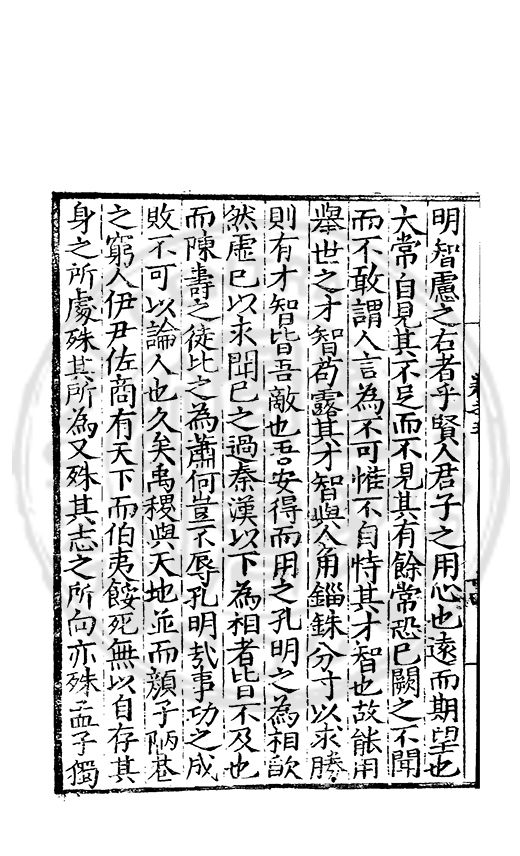 明智慮之右者乎賢人君子之用心也遠而期望也
大常自見其不足而不見其有餘常恐己闕之不聞
而不敢謂人言為不可惟不自恃其才智也故能用
舉世之才智苟露其才智與人角錙銖分寸以求勝
則有才智皆吾敵也吾安得而用之孔明之為相欿
然虛己以求聞己之過秦漢以下為相者皆不及也
而陳壽之徒比之為蕭何豈不辱孔明哉事功之成
敗不可以論人也久矣禹稷與天地並而顏子陋巷
之窮人伊尹佐商有天下而伯夷餒死無以自存其
身之所處殊其所為又殊其志之所向亦殊孟子獨